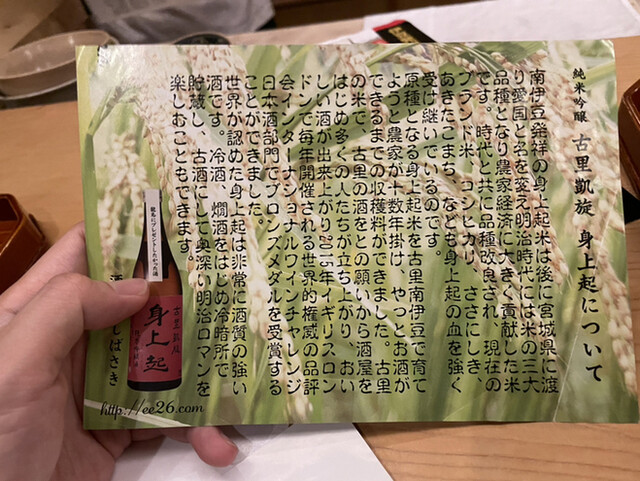 純米吟醸 古里凱旋 身上起について
南伊豆発祥の身上起米は後に宮城県に渡
り愛国と名を変え明治時代には米の三大
品種となり農家経済に大きく貢献した米
です。時代と共に品種改良され、現在の
ブランド米、コシヒカリ、ささにしき、
あきたこまち、なども身上起の血を強く
受け継いでいるのです。
原種となる身上起米を古里南伊豆で育て
ようと農家が十数年掛け、やっとお酒が
できるまでの収穫料ができました。古里
の米で、古里の酒をとの願いから酒屋を
はじめ多くの人たちが立ち上がり、おい
しい酒が出来上がり2011年イギリスロン
ドンで毎年開催される世界的権威の品評
会インターナショナルワインチャレンジ
日本酒部門でブロンズメダルを受賞する
ことができました。
世界が認めた身上起は非常に酒質の強い
酒です。冷酒、燗酒をはじめ冷暗所で
貯蔵し、古酒にして奥深い明治ロマンを
楽しむこともできます。
龍馬にプレゼントしたかった酒
古里凱旋
身上起
しばさき
http://ee26.com